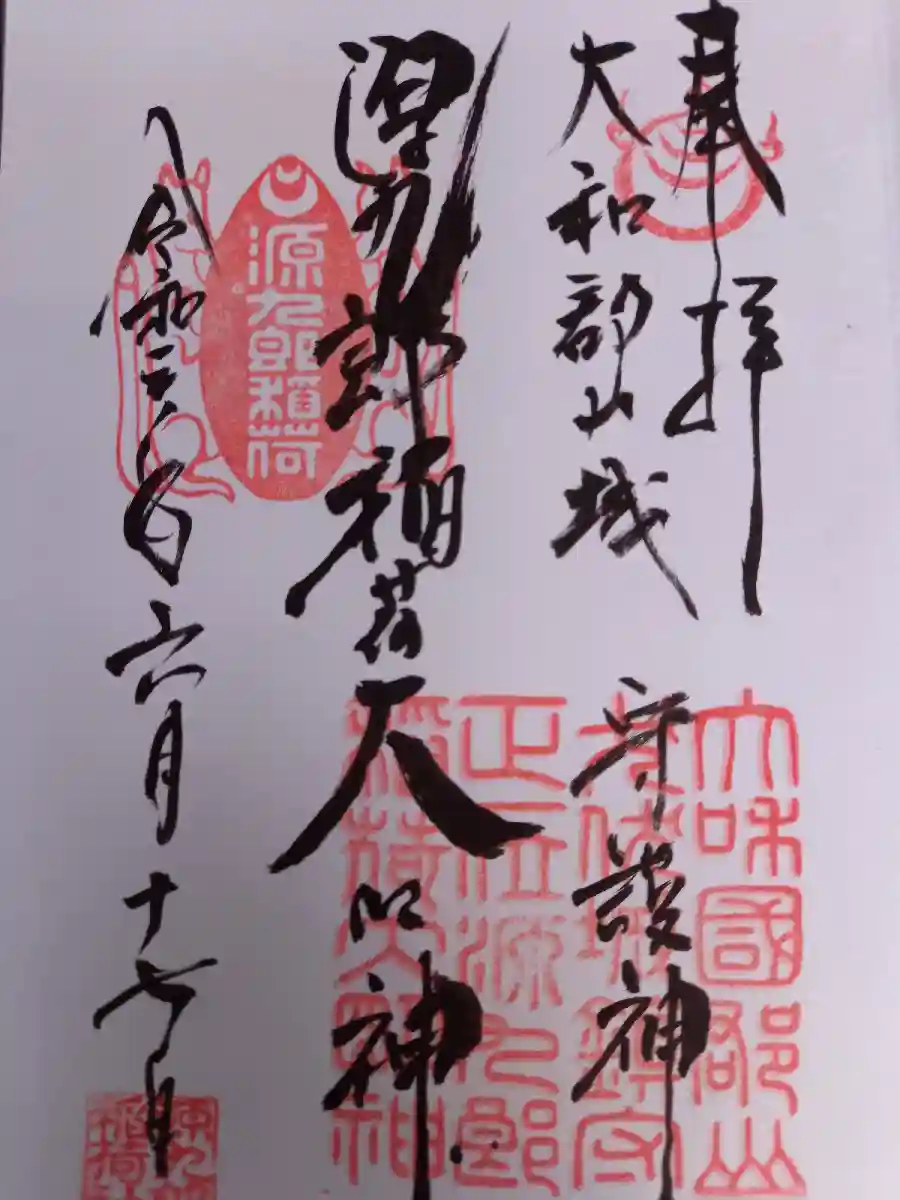 奉拝
大和郡山城 守護神
源九郎稲荷大明神
令和三年六月十七日
源九郎稲荷
大和國郡山
正一位源九郎
稲荷大明神